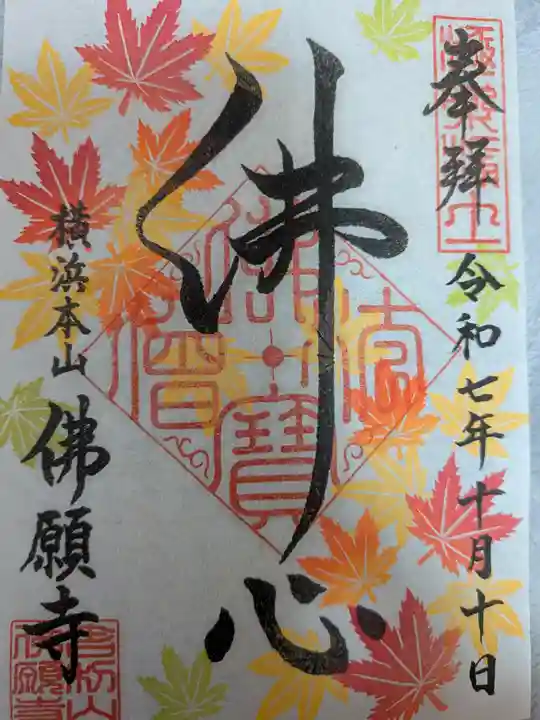 奉拝
令和七年十月十日
佛心
佛法僧寳
横浜本山
佛願寺